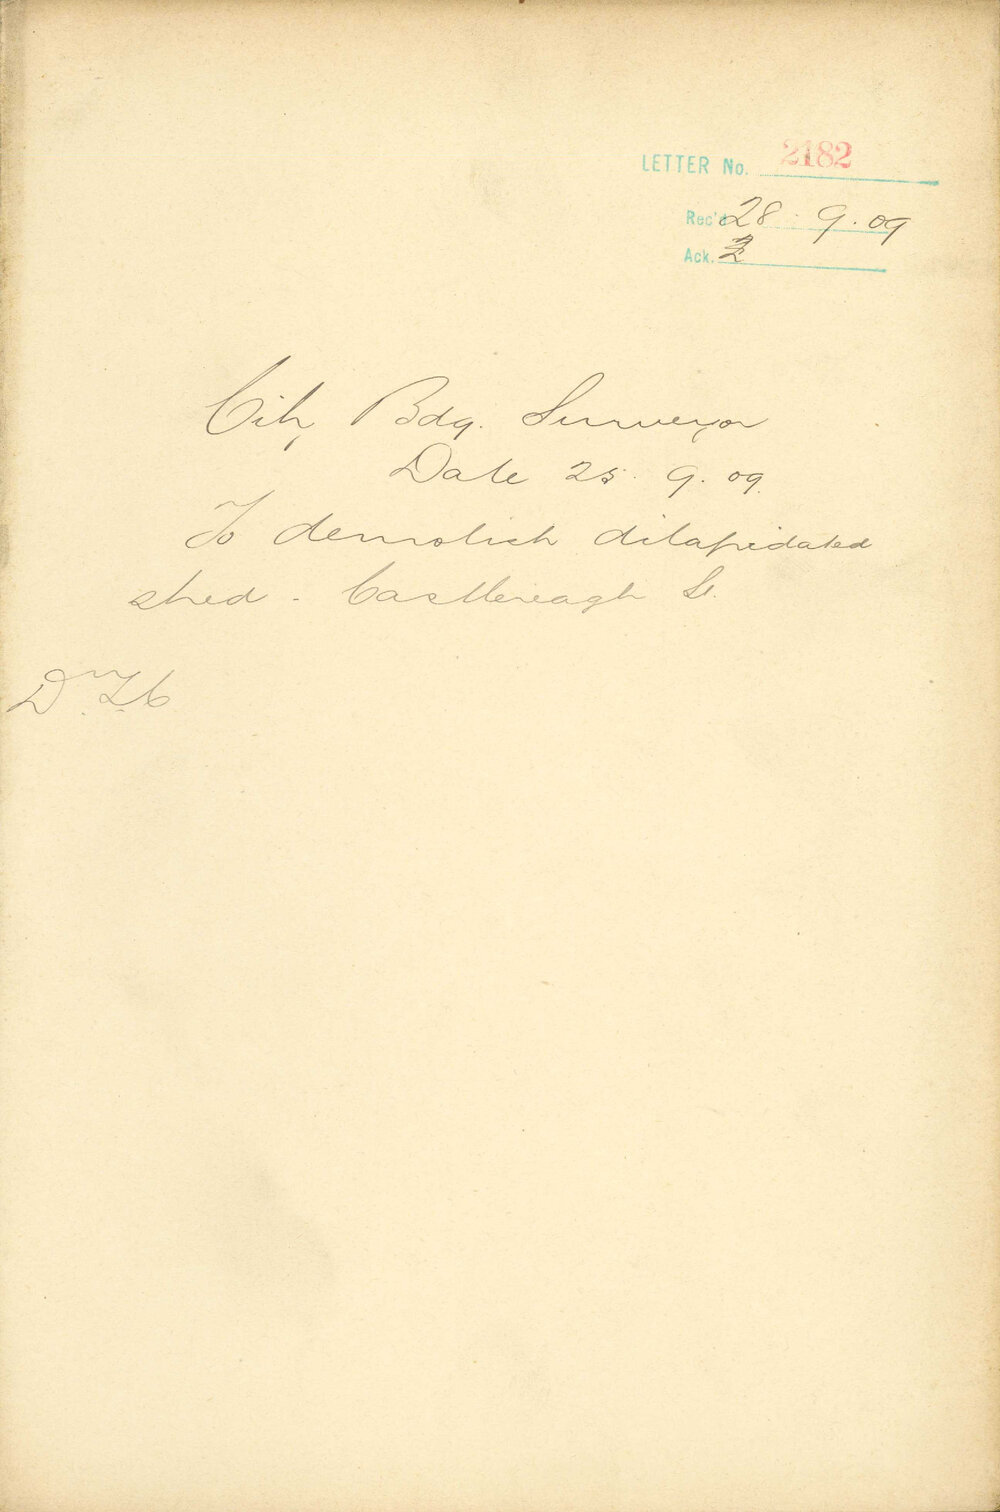 LETTER No. 2182
Rec'd 28 . 9 . 09
Ack.
City Bdg. Surveyor
Date 25 . 9 . 09.
To demolish dilapidated
shed - Castlereagh St.